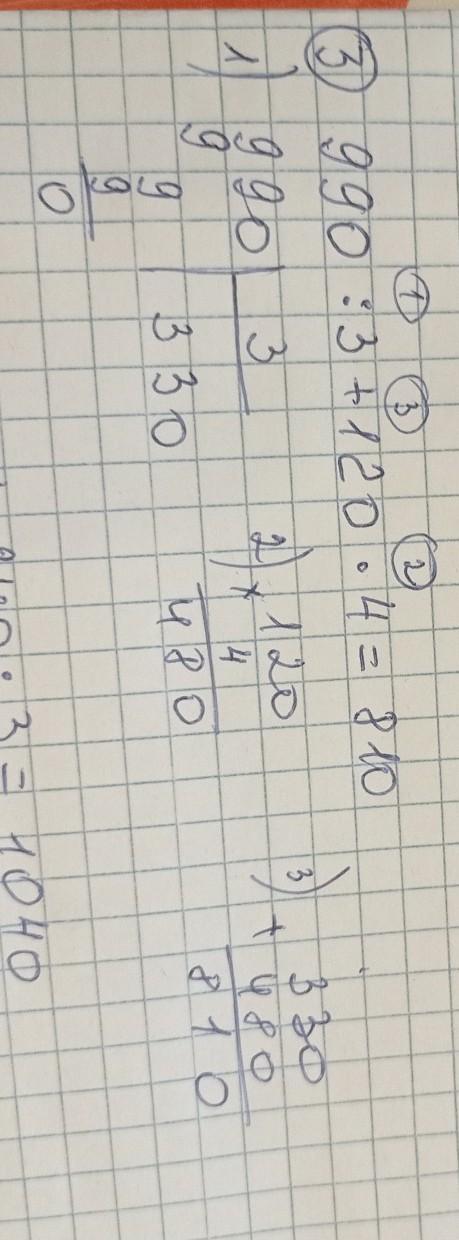 ③ 990 : 3 + 120 · 4 = 810
① ③ ②
1) 990 | 3
9 330
9
9
0
2) × 120
4
480
3) + 330
480
810
: 3 = 1040